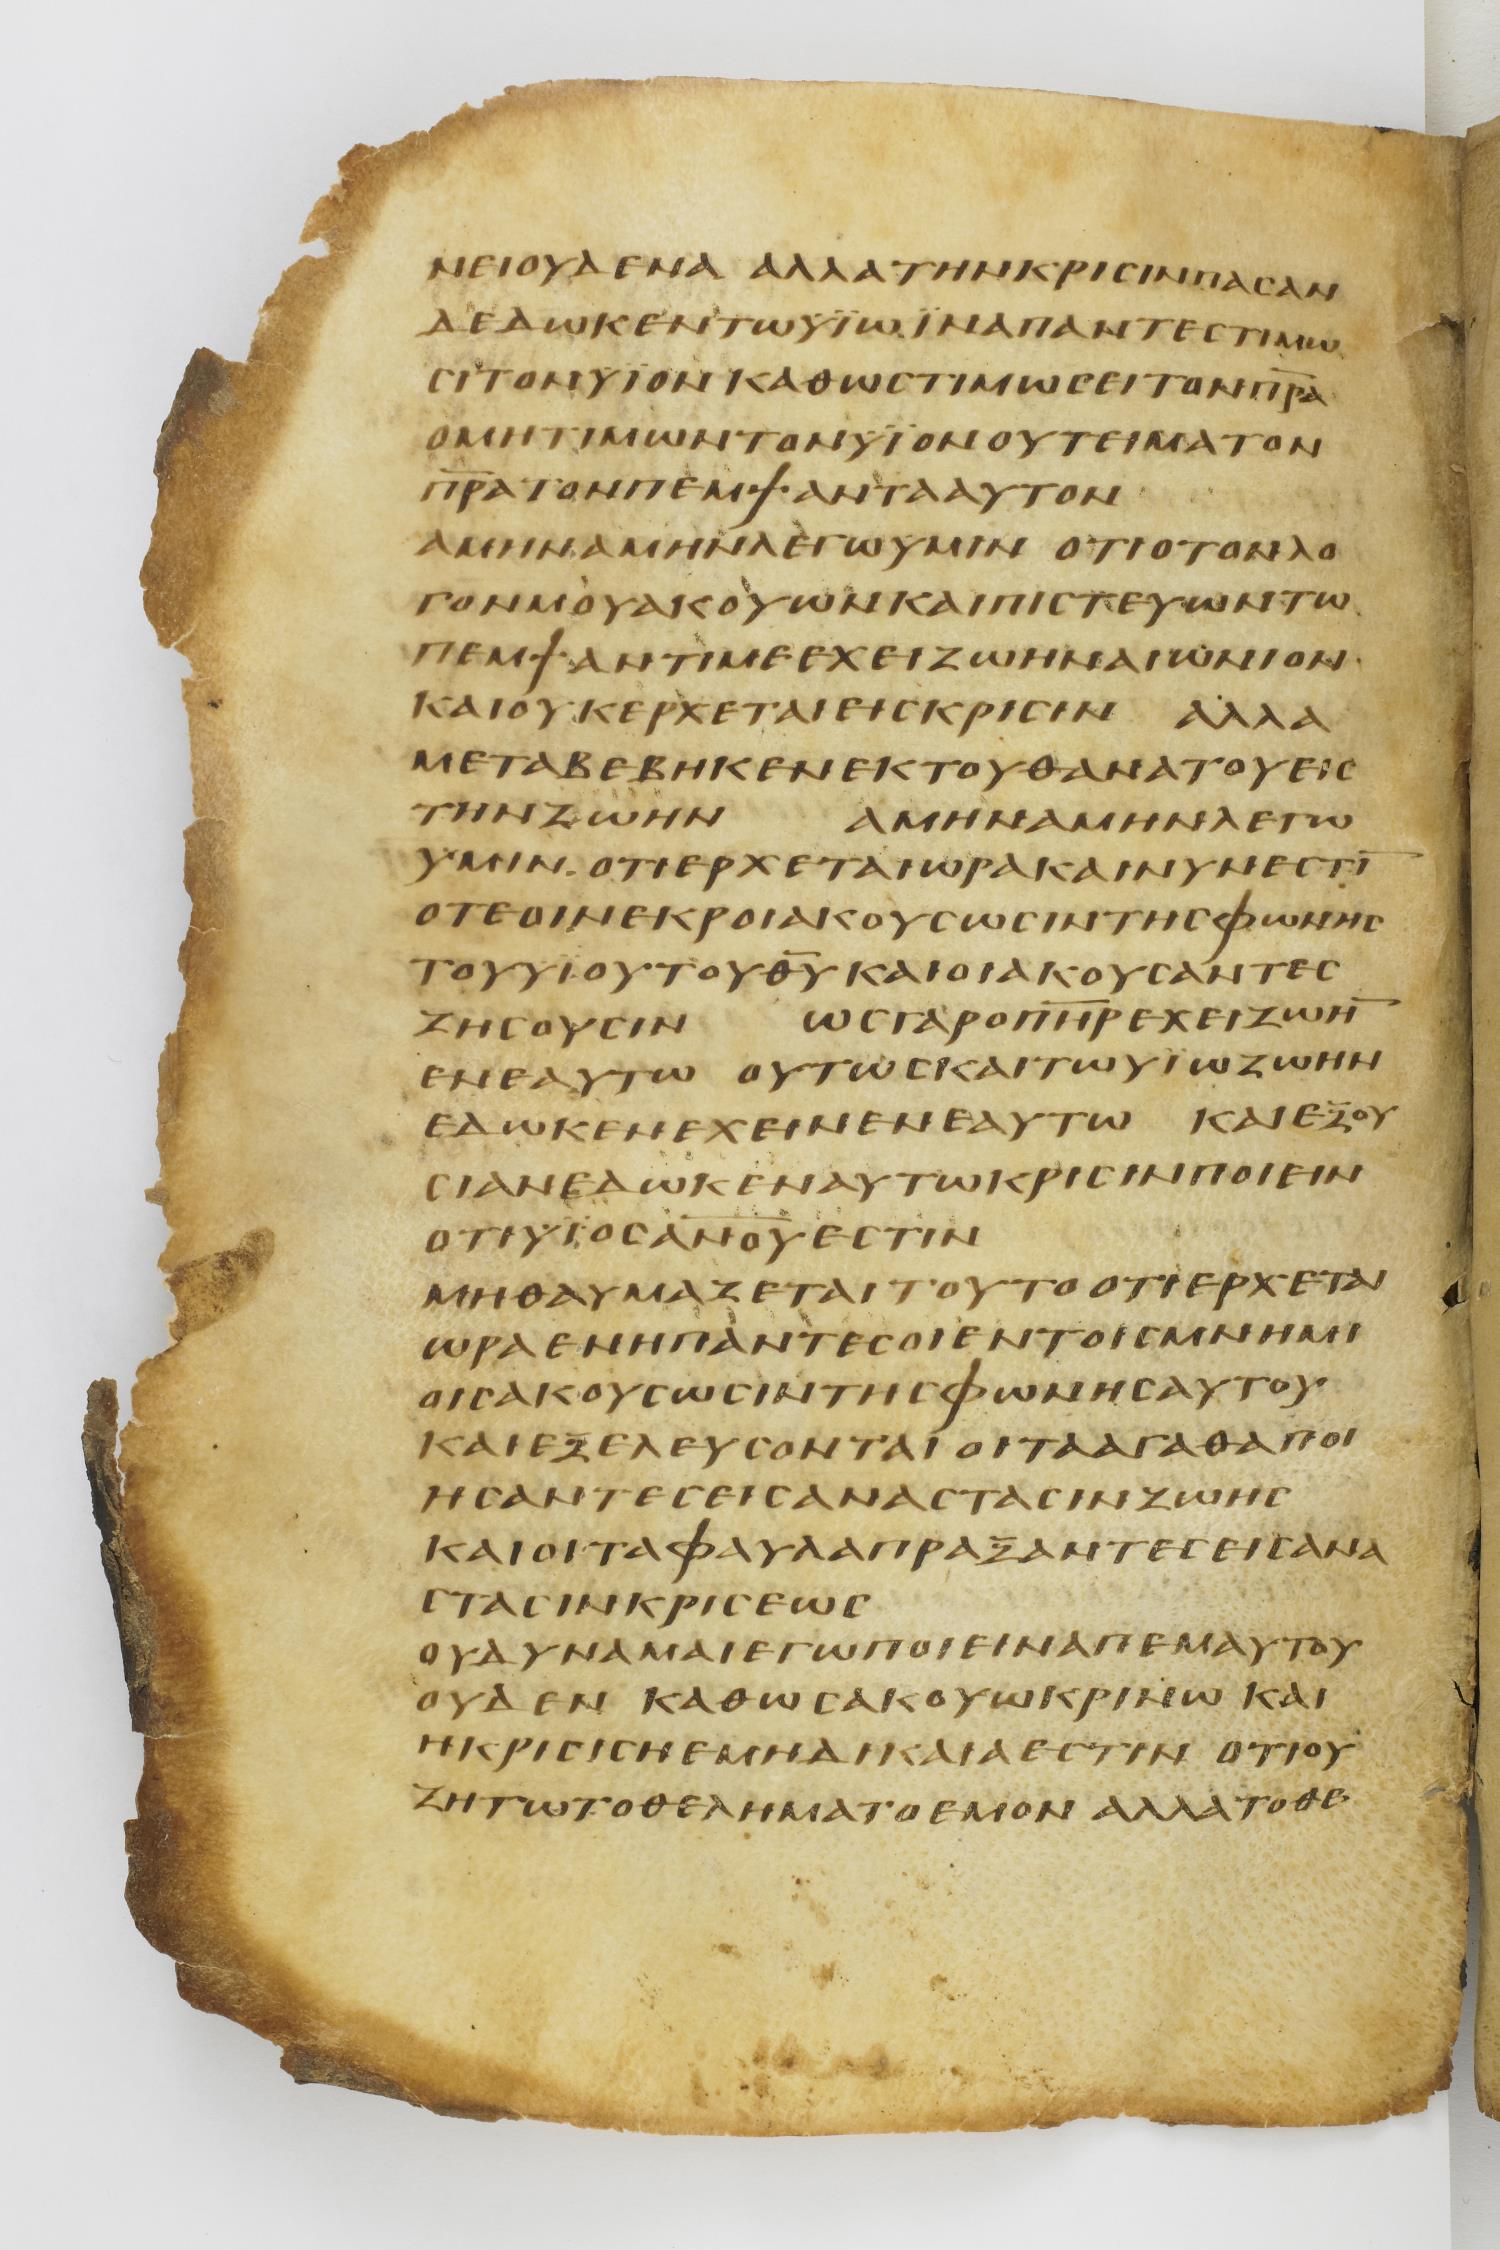 ΝΕΙΟΥΔΕΝΑ ΑΛΛΑΤΗΝΚΡΙCΙΝΠΑCΑΝ
ΔΕΔΩΚΕΝΤΩΥΪΩ ΪΝΑΠΑΝΤΕCΤΙΜΩ
CΙΤΟΝΥΪΟΝΚΑΘΩCΤΙΜΩCΕΙΤΟΝΠ̅Ρ̅Α̅
ΟΜΗΤΙΜΩΝΤΟΝΥΪΟΝΟΥΤΕΙΜΑΤΟΝ
Π̅Ρ̅Α̅ΤΟΝΠΕΜΨΑΝΤΑΑΥΤΟΝ
ΑΜΗΝΑΜΗΝΛΕΓΩΥΜΙΝ ΟΤΙΟΤΟΝΛΟ
ΓΟΝΜΟΥΑΚΟΥΩΝΚΑΙΠΙCΤΕΥΩΝΤΩ
ΠΕΜΨΑΝΤΙΜΕΕΧΕΙΖΩΗΝΑΙΩΝΙΟΝ
ΚΑΙΟΥΚΕΡΧΕΤΑΙΕΙCΚΡΙCΙΝ ΑΛΛΑ
ΜΕΤΑΒΕΒΗΚΕΝΕΚΤΟΥΘΑΝΑΤΟΥΕΙC
ΤΗΝΖΩΗΝ ΑΜΗΝΑΜΗΝΛΕΓΩ
ΥΜΙΝ. ΟΤΙΕΡΧΕΤΑΙΩΡΑΚΑΙΝΥΝΕCΤΙ̅
ΟΤΕΟΙΝΕΚΡΟΙΑΚΟΥCΩCΙΝΤΗCΦΩΝΗC
ΤΟΥΥΙΟΥΤΟΥΘ̅Υ̅ΚΑΙΟΙΑΚΟΥCΑΝΤΕC
ΖΗCΟΥCΙΝ ΩCΓΑΡΟΠ̅Η̅Ρ̅ΕΧΕΙΖΩΗ̅
ΕΝΕΑΥΤΩ ΟΥΤΩCΚΑΙΤΩΥΙΩΖΩΗΝ
ΕΔΩΚΕΝΕΧΕΙΝΕΝΕΑΥΤΩ ΚΑΙΕΞΟΥ
CΙΑΝΕΔΩΚΕΝΑΥΤΩΚΡΙCΙΝΠΟΙΕΙΝ
ΟΤΙΥΪΟCΑ̅Ν̅Ο̅Υ̅ΕCΤΙΝ
ΜΗΘΑΥΜΑΖΕΤΑΙΤΟΥΤΟΟΤΙΕΡΧΕΤΑΙ
ΩΡΑΕΝΗΠΑΝΤΕCΟΙΕΝΤΟΙCΜΝΗΜΙ
ΟΙCΑΚΟΥCΩCΙΝΤΗCΦΩΝΗCΑΥΤΟΥ
ΚΑΙΕΞΕΛΕΥCΟΝΤΑΙ ΟΙΤΑΑΓΑΘΑΠΟΙ
ΗCΑΝΤΕCΕΙCΑΝΑCΤΑCΙΝΖΩΗC
ΚΑΙΟΙΤΑΦΑΥΛΑΠΡΑΞΑΝΤΕCΕΙCΑΝΑ
CΤΑCΙΝΚΡΙCΕΩC
ΟΥΔΥΝΑΜΑΙΕΓΩΠΟΙΕΙΝΑΠΕΜΑΥΤΟΥ
ΟΥΔΕΝ ΚΑΘΩCΑΚΟΥΩΚΡΙΝΩ ΚΑΙ
ΗΚΡΙCΙCΗΕΜΗΔΙΚΑΙΑΕCΤΙΝ ΟΤΙΟΥ
ΖΗΤΩΤΟΘΕΛΗΜΑΤΟΕΜΟΝ ΑΛΛΑΤΟΘΕ